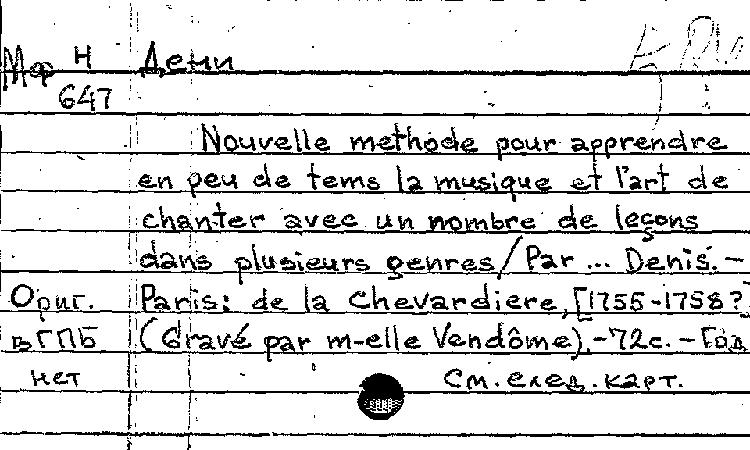 Мф Н Дени
647
Nouvelle methode pour apprendre
en peu de tems la musique et l'art de
chanter avec un nombre de leçons
dans plusieurs genres / Par ... Denis. –
Ориг. Paris: de la Chevardiere, [1755-1758?]
в ГПБ (Gravé par m-elle Vendôme). – 72 с. – Год
нет См. след. карт.